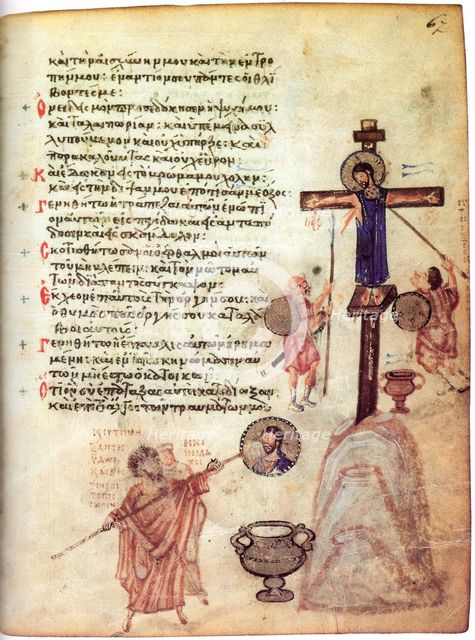 67
καὶ τὴν αἰσχύνην μου καὶ τὴν ἐντρο
πήν μου: ἐναντίον σου πάντες οἱ θλί
βοντές με:
Ὀνειδισμὸν προσεδόκησεν ἡ ψυχή μου:
καὶ ταλαιπωρίαν: καὶ ὑπέμεινα συλ
λυπούμενον καὶ οὐχ ὑπῆρξε: καὶ
παρακαλοῦντας καὶ οὐχ εὗρον:
Καὶ ἔδωκαν εἰς τὸ βρῶμά μου χολήν:
καὶ εἰς τὴν δίψαν μου ἐπότισάν με ὄξος:
Γενηθήτω ἡ τράπεζα αὐτῶν ἐνώπι
ον αὐτῶν εἰς παγίδα καὶ εἰς ἀνταπό
δοσιν καὶ εἰς σκάνδαλον:
Σκοτισθήτωσαν οἱ ὀφθαλμοὶ αὐτῶν
τοῦ μὴ βλέπειν: καὶ τὸν νῶτον αὐ
τῶν διὰ παντὸς σύγκαμψον:
Ἔκχεον ἐπ' αὐτοὺς τὴν ὀργήν σου: καὶ
ὁ θυμὸς τῆς ὀργῆς σου καταλά
βοι αὐτούς:
Γενηθήτω ἡ ἔπαυλις αὐτῶν ἠρημω
μένη: καὶ ἐν τοῖς σκηνώμασιν αὐ
τῶν μὴ ἔστω ὁ κατοικῶν:
Ὅτι ὃν σὺ ἐπάταξας αὐτοὶ κατεδίωξαν:
καὶ ἐπὶ τὸ ἄλγος τῶν τραυμάτων μου
heritage